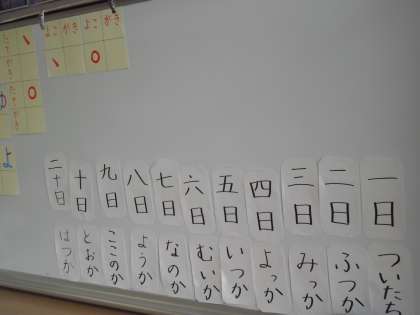 よこがき
、
。
たてがき
よ
一日
ついたち
二日
ふつか
三日
みっか
四日
よっか
五日
いつか
六日
むいか
七日
なのか
八日
ようか
九日
ここのか
十日
とおか
二十日
はつか